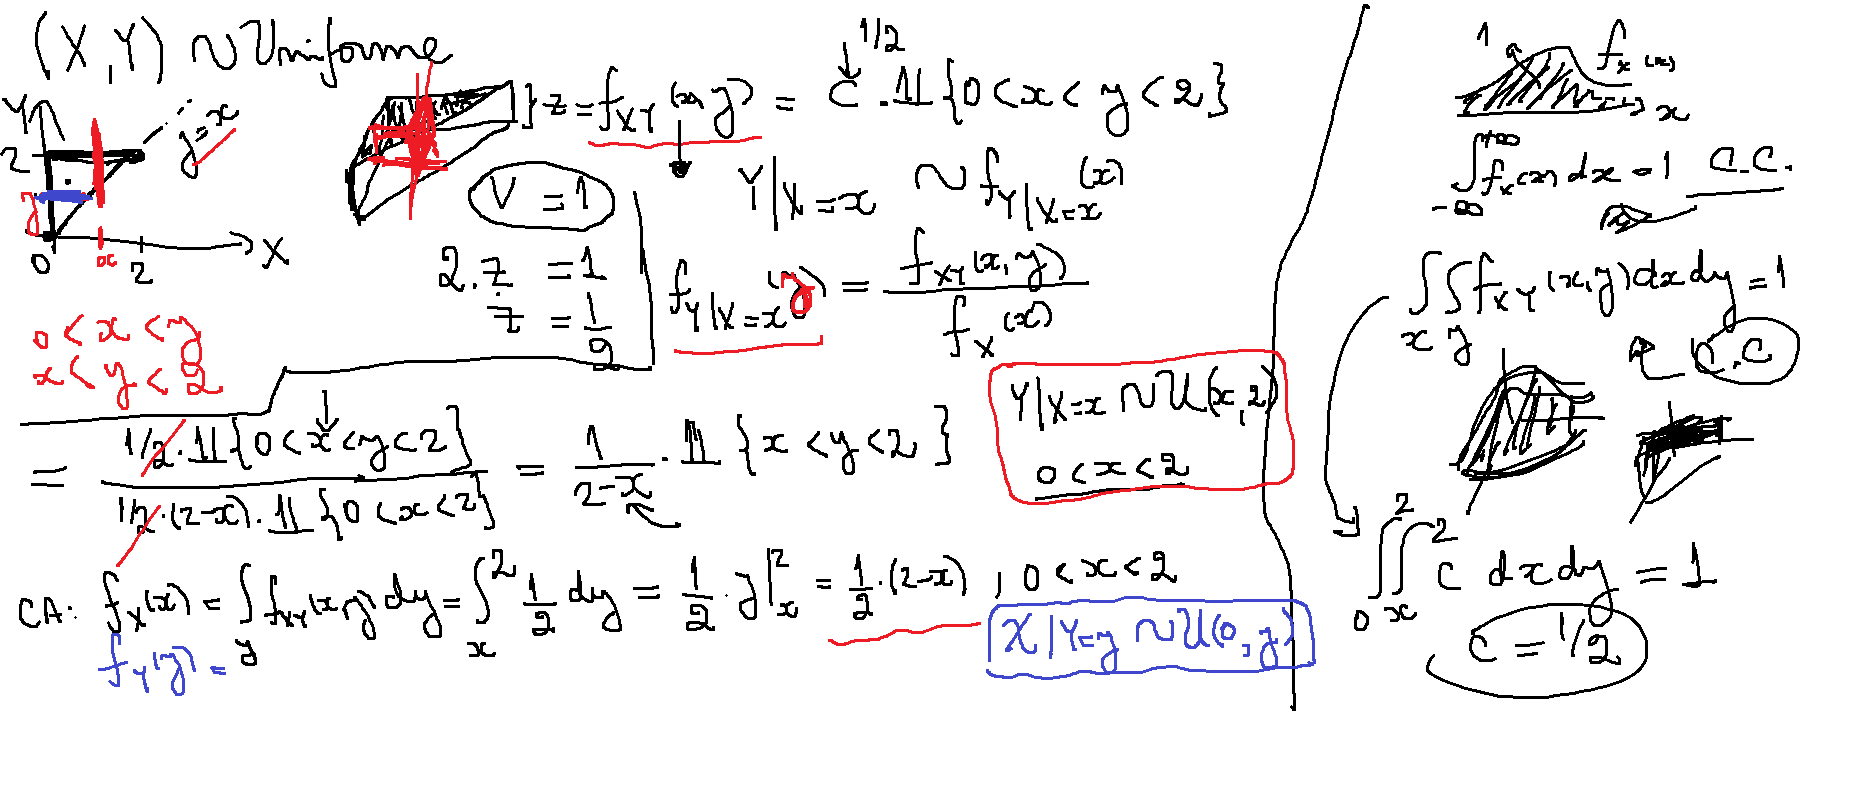 (X,Y) ~ Uniforme
Y
2
y=x
y
0
x
2
X
0<x<y
x<y<2
} z = f_{XY}(x,y) = c . 𝟙{0<x<y<2}
1/2
V = 1
2.z = 1
z = 1/2
Y|X=x ~ f_{Y|X=x}(x)
f_{Y|X=x}(y) = f_{XY}(x,y) / f_X(x)
= 1/2 . 𝟙{0<x<y<2} / 1/2.(2-x) . 𝟙{0<x<2} = 1/(2-x) . 𝟙{x<y<2}
Y|X=x ~ U(x,2)
0<x<2
CA: f_X(x) = ∫_y f_{XY}(x,y) dy = ∫_x^2 1/2 dy = 1/2 . y|_x^2 = 1/2 . (2-x), 0<x<2
f_Y(y) =
X|Y=y ~ U(0,y)
1
f_X(x)
x
∫_{-∞}^{+∞} f_X(x) dx = 1 C.C.
∫_x ∫_y f_{XY}(x,y) dx dy = 1
C.C
∫_0^2 ∫_x^2 c dx dy = 1
c = 1/2